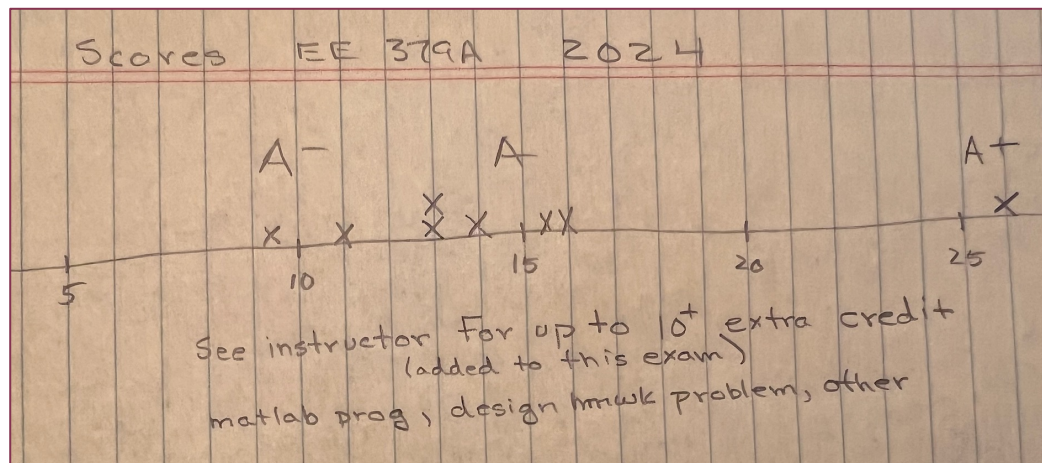 Scores EE 379A 2024
A- A A+
X
X X X X XX X
5 10 15 20 25
See instructor For up to 10+ extra credit
(added to this exam)
matlab prog, design hmwk problem, other